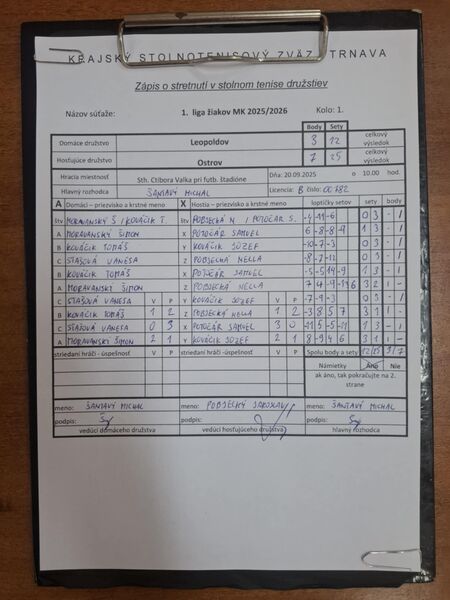 KRAJSKÝ STOLNOTENISOVÝ ZVÄZ TRNAVA
Zápis o stretnutí v stolnom tenise družstiev
Názov súťaže: 1. liga žiakov MK 2025/2026 Kolo: 1.
Body Sety
Domáce družstvo Leopoldov 3 12 celkový výsledok
Hosťujúce družstvo Ostrov 7 25 celkový výsledok
Hracia miestnosť Sth. Ctibora Valka pri futb. štadióne Dňa: 20.09.2025 o 10.00 hod.
Hlavný rozhodca ŠANTAVÝ MICHAL Licencia: B číslo: 00482
A Domáci - priezvisko a krstné meno X Hostia - priezvisko a krstné meno loptičky setov sety body
štv MORAVANSKÝ Š / KOVÁČIK T. štv POBJECKÁ N / POTOČÁR S. -4 -11 -6 0 3 - 1
A MORAVANSKÝ ŠIMON X POTOČÁR SAMUEL 1 3 - 1
B KOVÁČIK TOMÁŠ Y KOVÁČIK JOZEF -10 -7 -3 0 3 - 1
C STAŠOVÁ VANESA Z POBJECKÁ NELLA -8 -7 -12 0 3 - 1
B KOVÁČIK TOMÁŠ X POTOČÁR SAMUEL -5 -5 14 -9 1 3 - 1
A MORAVANSKÝ ŠIMON Z POBJECKÁ NELLA 7 4 -9 3 2 1 -
C STAŠOVÁ VANESA V P Y KOVÁČIK JOZEF V P -7 -9 -3 0 3 - 1
B KOVÁČIK TOMÁŠ 1 2 Z POBJECKÁ NELLA 1 2 -3 8 5 7 3 1 1 -
C STAŠOVÁ VANESA 0 3 X POTOČÁR SAMUEL 3 0 -11 5 -5 -11 1 3 - 1
A MORAVANSKÝ ŠIMON 2 1 Y KOVÁČIK JOZEF 2 1 8 -9 4 6 3 1 1 -
striedaní hráči - úspešnosť V P striedaní hráči -úspešnosť V P Spolu body a sety 12/25 3/7
Námietky Áno Nie
ak áno, tak pokračujte na 2. strane
meno: ŠANTAVÝ MICHAL meno: POBJECKÝ JAROSLAV meno: ŠANTAVÝ MICHAL
podpis: podpis: podpis:
vedúci domáceho družstva vedúci hosťujúceho družstva hlavný rozhodca